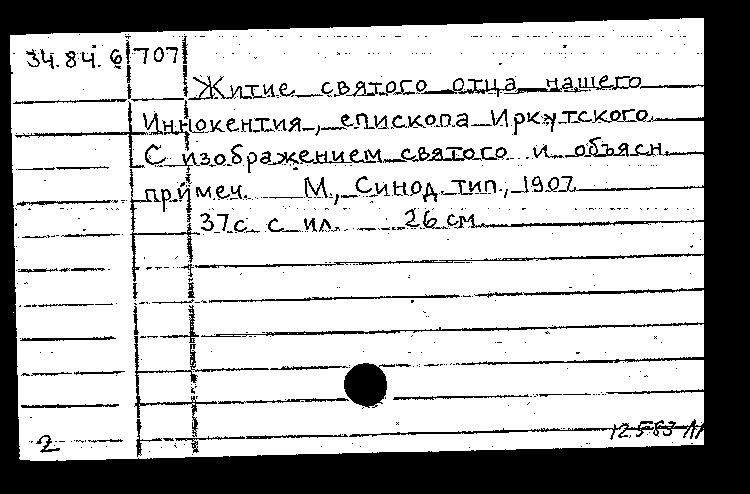 34.84.6 707
Житие святого отца нашего
Иннокентия, епископа Иркутского.
С изображением святого и объясн.
примеч. М., Синод. тип., 1907.
37 с. с ил. 26 см.
2